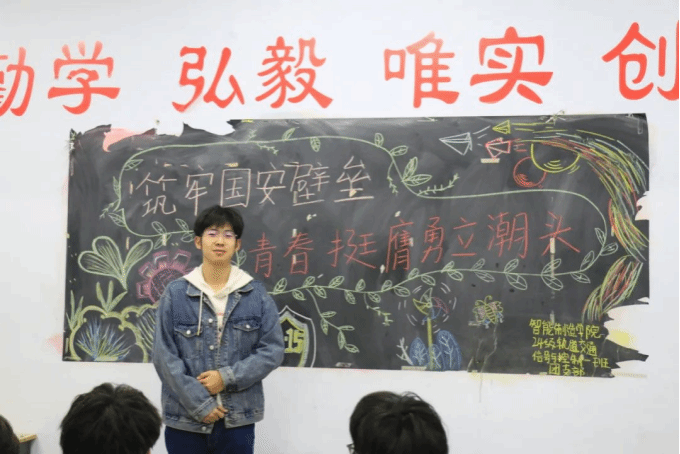 勤学 弘毅 唯实 创
筑牢国安壁垒
青春挺膺勇立潮头
415
智能制造学院
24级轨道交通
信号与控制一班
团支部